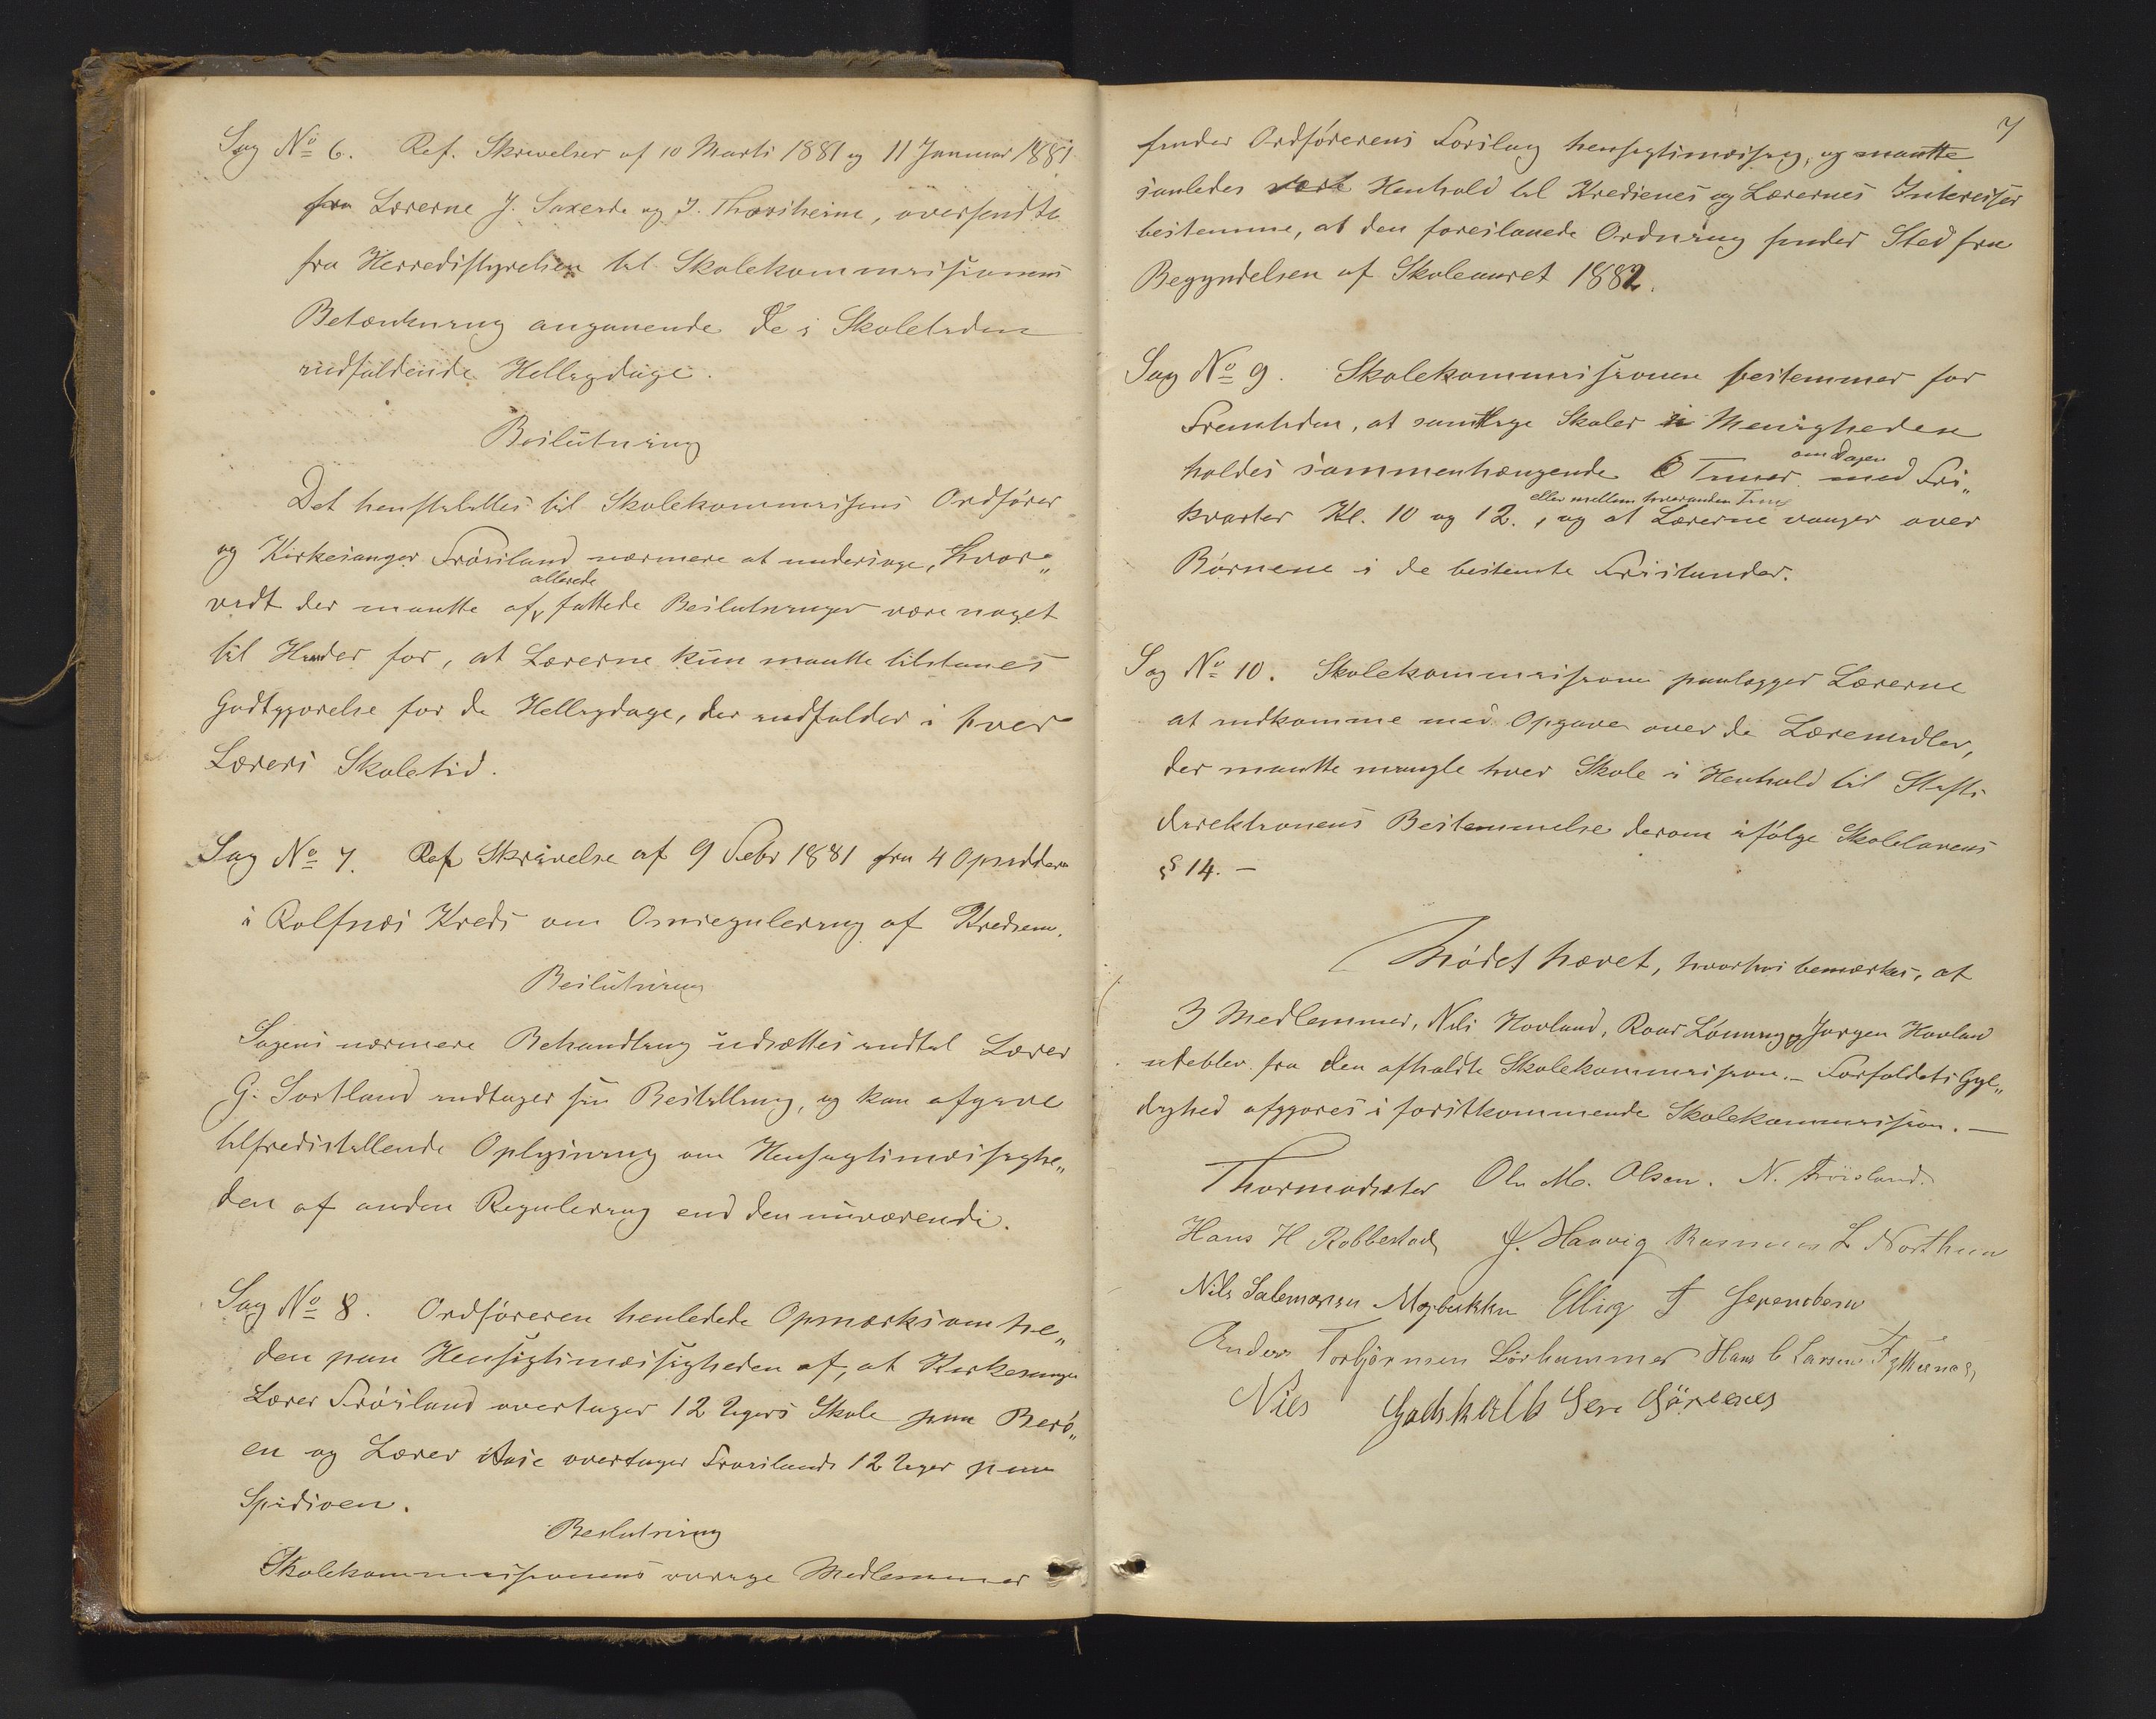 Sag No 6. Ref. Skrivelser af 10 Marts 1881 og 11 Januar 1881
fra Lærerne J. Saxerde og J. Thorsheim, oversendte
fra Herredstyrelsen til Skolekommissionens
Betænkning angaaende de i Skoletiden
indfaldende Helligdage.
Beslutning
Det henstilles til Skolekommissions Ordfører
og Kirkesanger Frøisland nærmere at undersøge, hvor„
vidt der maatte af allerede fattede Beslutninger være noget
til Hinder for, at Lærerne kun maatte tilstaaes
Godtgjørelse for de Helligdage, der indfalder i hver
Lærers Skoletid.
Sag No 7. Ref Skrivelse af 9 Febr 1881 fra 4 Opsiddere
i Rolfsnæs Kreds om Omregulering af Kredsene.
Beslutning
Sagens nærmere Behandling udsættes indtil Lærer
G. Sortland indtager sin Bestilling, og kan afgive
tilfredsstillende Oplysning om Hensigtsmæssighe„
den af anden Regulering end den nuværende.
Sag No 8. Ordføreren henledede Opmærksomhe„
den paa Hensigtsmæssigheden af, at Kirkesanger
Lærer Frøisland overtager 12 Ugers Skole paa Berø„
en og Lærer Aase overtager Frøislands 12 Uger paa
Spidsøen.
Beslutning
Skolekommissionens øvrige Medlemmer
7
finder Ordførerens Forslag hensigtsmæssig, og maatte
saaledes Henhold til Kredsenes og Lærernes Interesser
bestemme, at den foreslaaede Ordning finder Sted fra
Begyndelsen af Skoleaaret 1882.
Sag No 9. Skolekommissionen bestemmer for
Fremtiden, at samtlige Skoler i Menigheden
holdes sammenhængende 6 Timer om Dagen med Fri„
kvarter Kl. 10 og 12. eller mellem hver anden Time, og at Lærerne vaager over
Børnene i de bestemte Fristunder.
Sag No 10. Skolekommissionen paalægger Lærerne
at indkomme med Opgave over de Læremidler,
der maatte mangle hver Skole i Henhold til Stifts
direktionens Bestemmelse derom ifølge Skolelovens
§ 14. –
Mødet hævet, hvorhos bemærkes, at
3 Medlemmer, Nils Hovland, Roar Lønning og Jørgen Hovland
udeblev fra den afholdte Skolekommission. – Forfaldets Gyl„
dighed afgjøres i førstkommende Skolekommission. –
Thormodsæter Ole M. Olsen. N. Frøisland.
Hans H Robbestad J. Haavig Rasmus L Northun
Nils Salemonsen Møgbukken Ellig T
Anders Torbjørnsen Lørhammer Hans C Larsen
Nils Godskalk